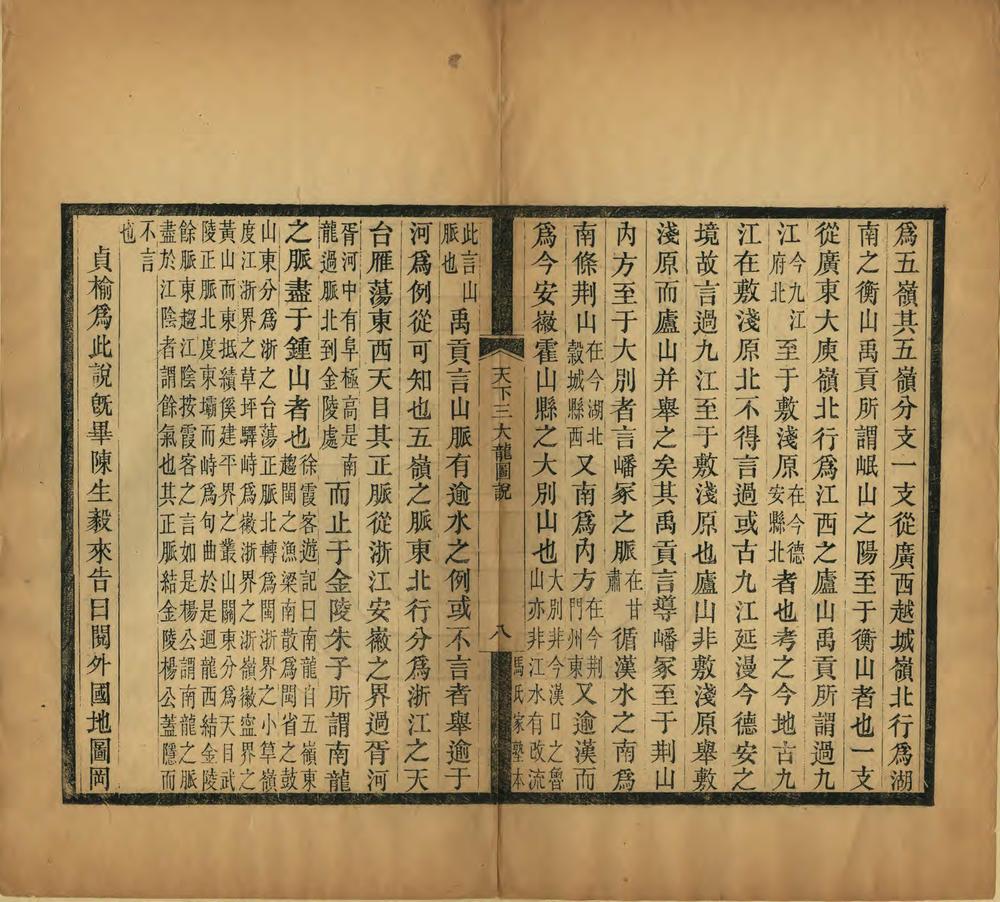 為五嶺其五嶺分支一支從廣西越城嶺北行為湖
南之衡山禹貢所謂岷山之陽至于衡山者也一支
從廣東大庾嶺北行為江西之廬山禹貢所謂過九
江今九江府北至于敷淺原在今德安縣北者也考之今地古九
江在敷淺原北不得言過或古九江延漫今德安之
境故言過九江至于敷淺原也廬山非敷淺原舉敷
淺原而廬山并舉之矣其禹貢言導嶓冢至于荆山
內方至于大別者言嶓冢之脈在甘肅循漢水之南為
南條荆山在今湖北穀城縣西又南為內方在今荆門州東又逾漢而
為今安徽霍山縣之大別山也大別非今漢口之魯山亦非江水有改流
馮氏家塾本
天下三大龍圖說
八
此言山脈也禹貢言山脈有逾水之例或不言者舉逾于
河為例從可知也五嶺之脈東北行分為浙江之天
台雁蕩東西天目其正脈從浙江安徽之界過胥河
胥河中有阜極高是南龍過脈北到金陵處而止于金陵朱子所謂南龍
之脈盡于鍾山者也徐霞客遊記曰南龍自五嶺東趨閩之漁梁南散為閩省之鼓
山東分為浙之台蕩正脈北轉為閩浙界之小草嶺
度江浙界之草坪驛峙為徽浙界之浙嶺徽寧界之
黃山而東抵績溪建平界之叢山關東分為天目武
陵正脈北度東壩而峙為句曲於是迴龍西結金陵
餘脈東趨江陰按霞客之言如是楊公謂南龍之脈
盡於江陰者謂餘氣也其正脈結金陵楊公蓋隱而
不言
也
貞榆為此說旣畢陳生毅來告曰閱外國地圖岡